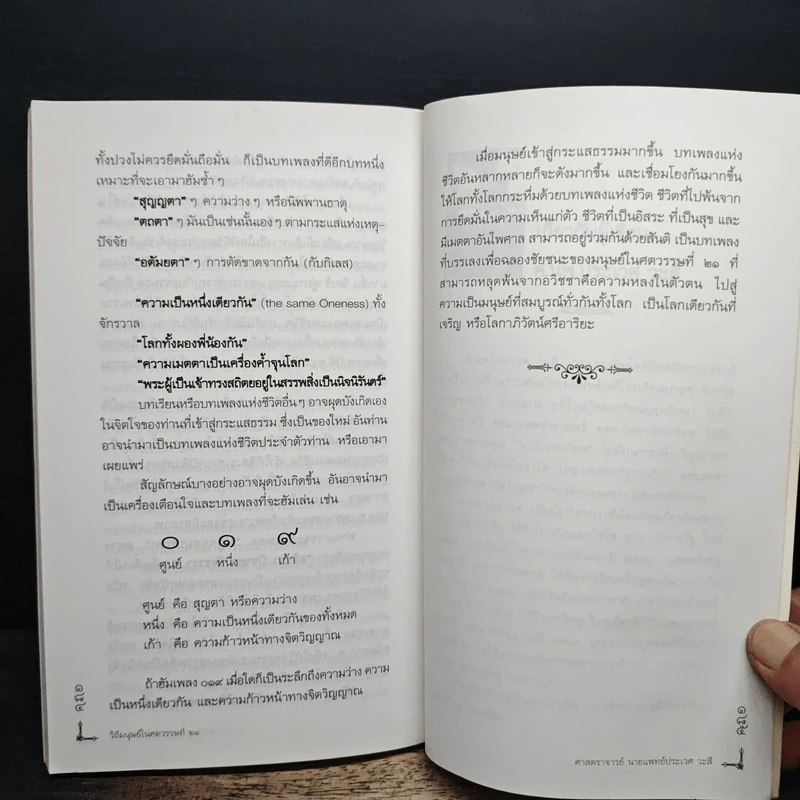 ทั้งปวงไม่ควรยึดมั่นถือมั่น ก็เป็นบทเพลงที่ดีอีกบทหนึ่ง
เหมาะที่จะเอามาฮัมซ้ำๆ
"สุญญตา" ๆ ความว่างๆ หรือนิพพานธาตุ
"ตถตา" ๆ มันเป็นเช่นนั้นเองๆ ตามกระแสแห่งเหตุ-
ปัจจัย
"อตัมยตา" ๆ การตัดขาดจากกัน (กับกิเลส)
"ความเป็นหนึ่งเดียวกัน" (the same Oneness) ทั้ง
จักรวาล
"โลกทั้งผองพี่น้องกัน"
"ความเมตตาเป็นเครื่องค้ำจุนโลก"
"พระผู้เป็นเจ้าทรงสถิตยอยู่ในสรรพสิ่งเป็นนิจนิรันดร์"
บทเรียนหรือบทเพลงแห่งชีวิตอื่นๆ อาจผุดบังเกิดเอง
ในจิตใจของท่านที่เข้าสู่กระแสธรรม ซึ่งเป็นของใหม่ อันท่าน
อาจนำมาเป็นบทเพลงแห่งชีวิตประจำตัวท่าน หรือเอามา
เผยแพร่
สัญลักษณ์บางอย่างอาจผุดบังเกิดขึ้น อันอาจนำมา
เป็นเครื่องเตือนใจและบทเพลงที่จะฮัมเล่น เช่น
๐ ๑ ๙
ศูนย์ หนึ่ง เก้า
ศูนย์ คือ สุญตา หรือความว่าง
หนึ่ง คือ ความเป็นหนึ่งเดียวกันของทั้งหมด
เก้า คือ ความก้าวหน้าทางจิตวิญญาณ
ถ้าฮัมเพลง ๐๑๙ เมื่อใดก็เป็นระลึกถึงความว่าง ความ
เป็นหนึ่งเดียวกัน และความก้าวหน้าทางจิตวิญญาณ
วิถีมนุษย์ในศตวรรษที่ ๒๑
เมื่อมนุษย์เข้าสู่กระแสธรรมมากขึ้น บทเพลงแห่ง
ชีวิตอันหลากหลายก็จะดังมากขึ้น และเชื่อมโยงกันมากขึ้น
ให้โลกทั้งโลกกระหึ่มด้วยบทเพลงแห่งชีวิต ชีวิตที่ไปพ้นจาก
การยึดมั่นในความเห็นแก่ตัว ชีวิตที่เป็นอิสระ ที่เป็นสุข และ
มีเมตตาอันไพศาล สามารถอยู่ร่วมกันด้วยสันติ เป็นบทเพลง
ที่บรรเลงเพื่อฉลองชัยชนะของมนุษย์ในศตวรรษที่ ๒๑ ที่
สามารถหลุดพ้นจากอวิชชาคือความหลงในตัวตน ไปสู่
ความเป็นมนุษย์ที่สมบูรณ์ทั่วกันทั้งโลก เป็นโลกเดียวกันที่
เจริญ หรือโลกาภิวัตน์ศรีอาริยะ
ศาสตราจารย์ นายแพทย์ประเวศ วะสี